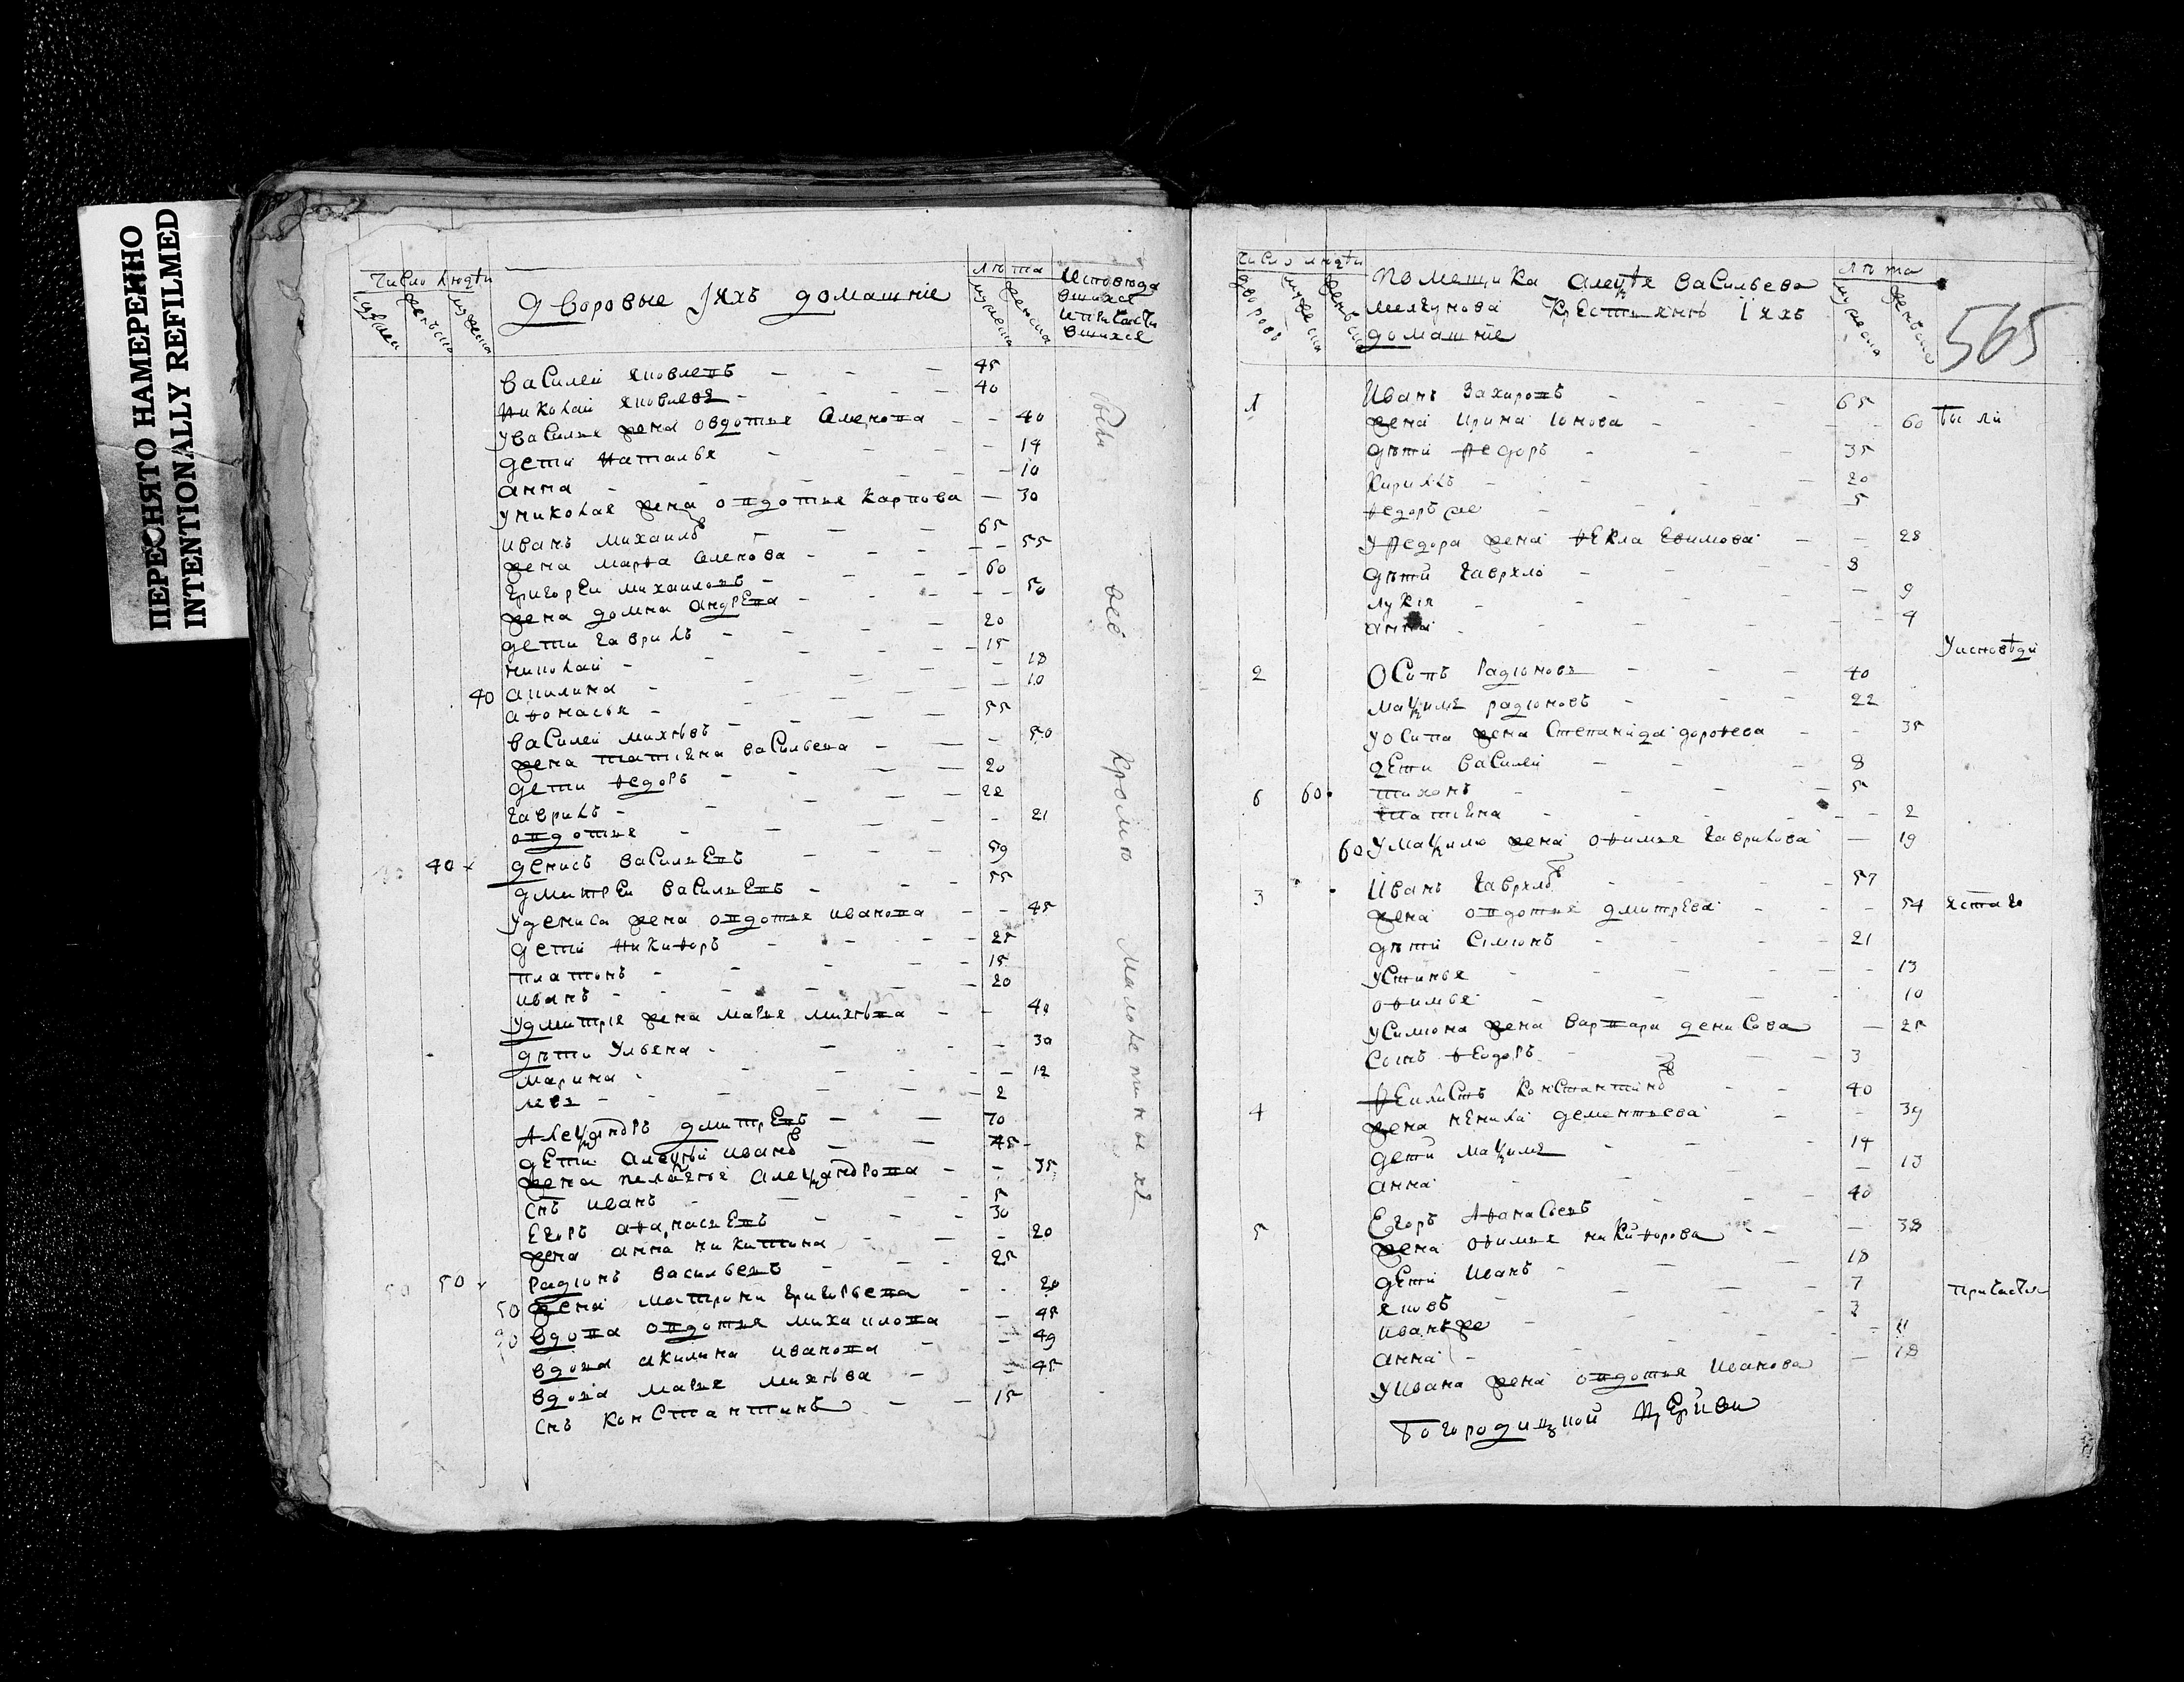 ПЕРЕСНЯТО НАМЕРЕННО
INTENTIONALLY REFILMED
число людѣи
дворовые Іихъ домашніе
лѣта
мужеска
женска
Исповѣда
вшихся
ипричасти
вшихся
василеи яковлевъ - - - 45
Николаи яковлевъ - - - 40
Увасилья жена овдотья - - 40
дети Наталья - - - 14
анна - - - 10
Униколая жена овдотья карпова - 30
иванъ михаиловъ - - - 65
жена марѳа - - - 55
григореи михаиловъ - - - 60
жена домна андрева - - - 50
дети гаврилъ - - - 20
николаи - - - 15
40 акилина - - - 18
аѳонасья - - - 10
василеи михѣевъ - - - 55
жена татияна васильева - - 50
дети ѳедоръ - - - 20
гаврилъ - - - 22
овдотья - - - 21
40 денисъ василиевъ - - - 59
дмитреи василиевъ - - - 55
Удениса жена овдотья иванова - - 45
дети Никиѳоръ - - - 25
платонъ - - - 15
иванъ - - - 20
Удмитрея жена марья михѣва - - 40
дѣти Ульяна - - - 30
марина - - - 12
левъ - - - 2
Алеѯандръ дмитревъ - - 70
дети алеѯѣй ивановъ - - 45
жена пелагея алеѯандрова - - 35
снъ иванъ - - - 5
Егоръ аѳанасьевъ - - - 30
жена анна никитина - - - 20
50 50 радионъ васильевъ - - - 25
50 жена матрона григорьева - - 20
вдова овдотья михаилова - - 45
вдова акилина иванова - - 49
вдова марья михѣва - - 45
снъ константинъ - - 15
всѣ кромѣ малолетныхъ
число людѣи
дворовъ
мужеска
женска
помещика алеѯѣя васильева
мелгунова крестиянъ Iихъ
домашніе
лѣта
мужеска
женска
565
1 Иванъ захаровъ - - - 65
жена ирина ионова - - - 60 были
дѣти ѳедоръ - - - 35
кирилъ - - - 20
ѳедоръ же - - - 5
Уѳедора жена ѳекла Еѳимова - - 28
дѣти гаврило - - - 8
лукія - - - 9
анна - - - 4
Уисповѣди
2 Осипъ радионовъ - - 40
маѯимъ радионовъ - - - 22
Уосипа жена степанида дороѳева - - 35
дети василей - - - 8
6 60 тихонъ - - - 5
татияна - - - 2
60 Умаѯима жена оѳимья гаврилова - 19
3 Иванъ гавриловъ - - - 57
жена овдотья дмитрева - - - 54 ястаго
дѣти симионъ - - - 21
Устинья - - - 13
оѳимья - - - 10
Усимиона жена варвара денисова - 25
сынъ ѳеодоръ - - - 3
4 Ѳеилистъ константиновъ - - 40
жена неонила дементьева - - 39
дети маѯимъ - - - 14
анна - - - 13
5 Егоръ Аѳанасьевъ - - 40
жена оѳимья никиѳорова - - - 38
дети иванъ - - 18
яковъ - - 7 причастья
иванъ же - - - 3
анна - - -
Уивана жена овдотья иванова - 18
богородицкой церкви